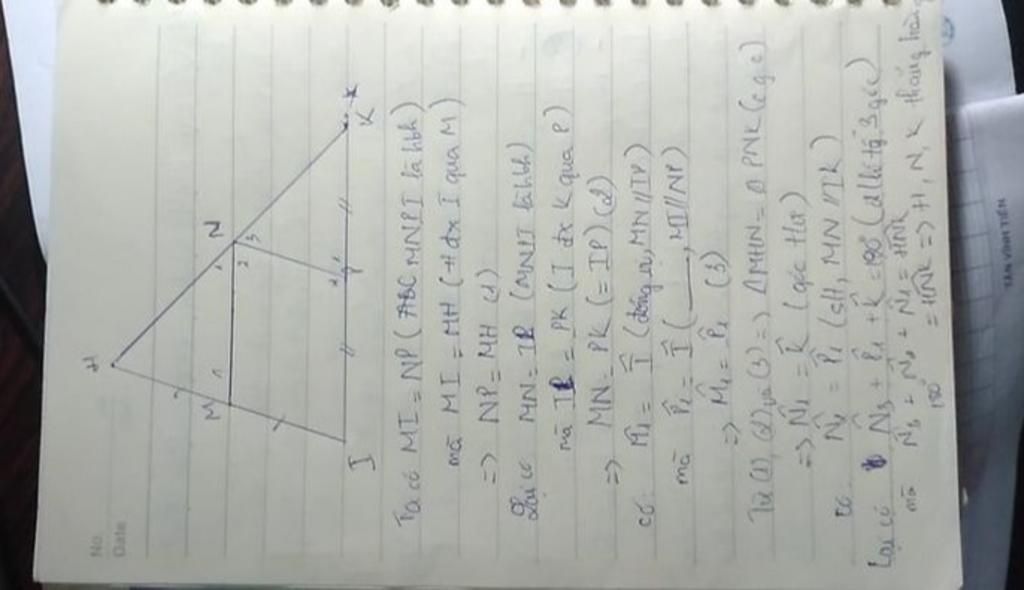 No
Date
H
M
1
N
1
2
3
I
2
P
1
K
Ta có MI = NP (ABC MNPI là hbh)
mà MI = MH (H đx I qua M)
=> NP = MH (1)
Lại có MN = IP (MNPI là hbh)
mà IP = PK (I đx K qua P)
=> MN = PK (= IP) (2)
có M̂₁ = Î (đồng vị, MN // IP)
mà P̂₁ = Î (____, MI // NP)
=> M̂₁ = P̂₁ (3)
Từ (1), (2) và (3) => ΔMHN = ΔPNK (c.g.c)
=> N̂₁ = K̂ (góc t/ư)
Có N̂₂ = P̂₁ (slt, MN // IK)
Lại có N̂₃ + P̂₁ + K̂ = 180° (đlí tổng 3 góc)
mà N̂₃ + N̂₂ + N̂₁ = HNK
180° = HNK => H, N, K thẳng hàng
TÂN VĨNH TIẾN